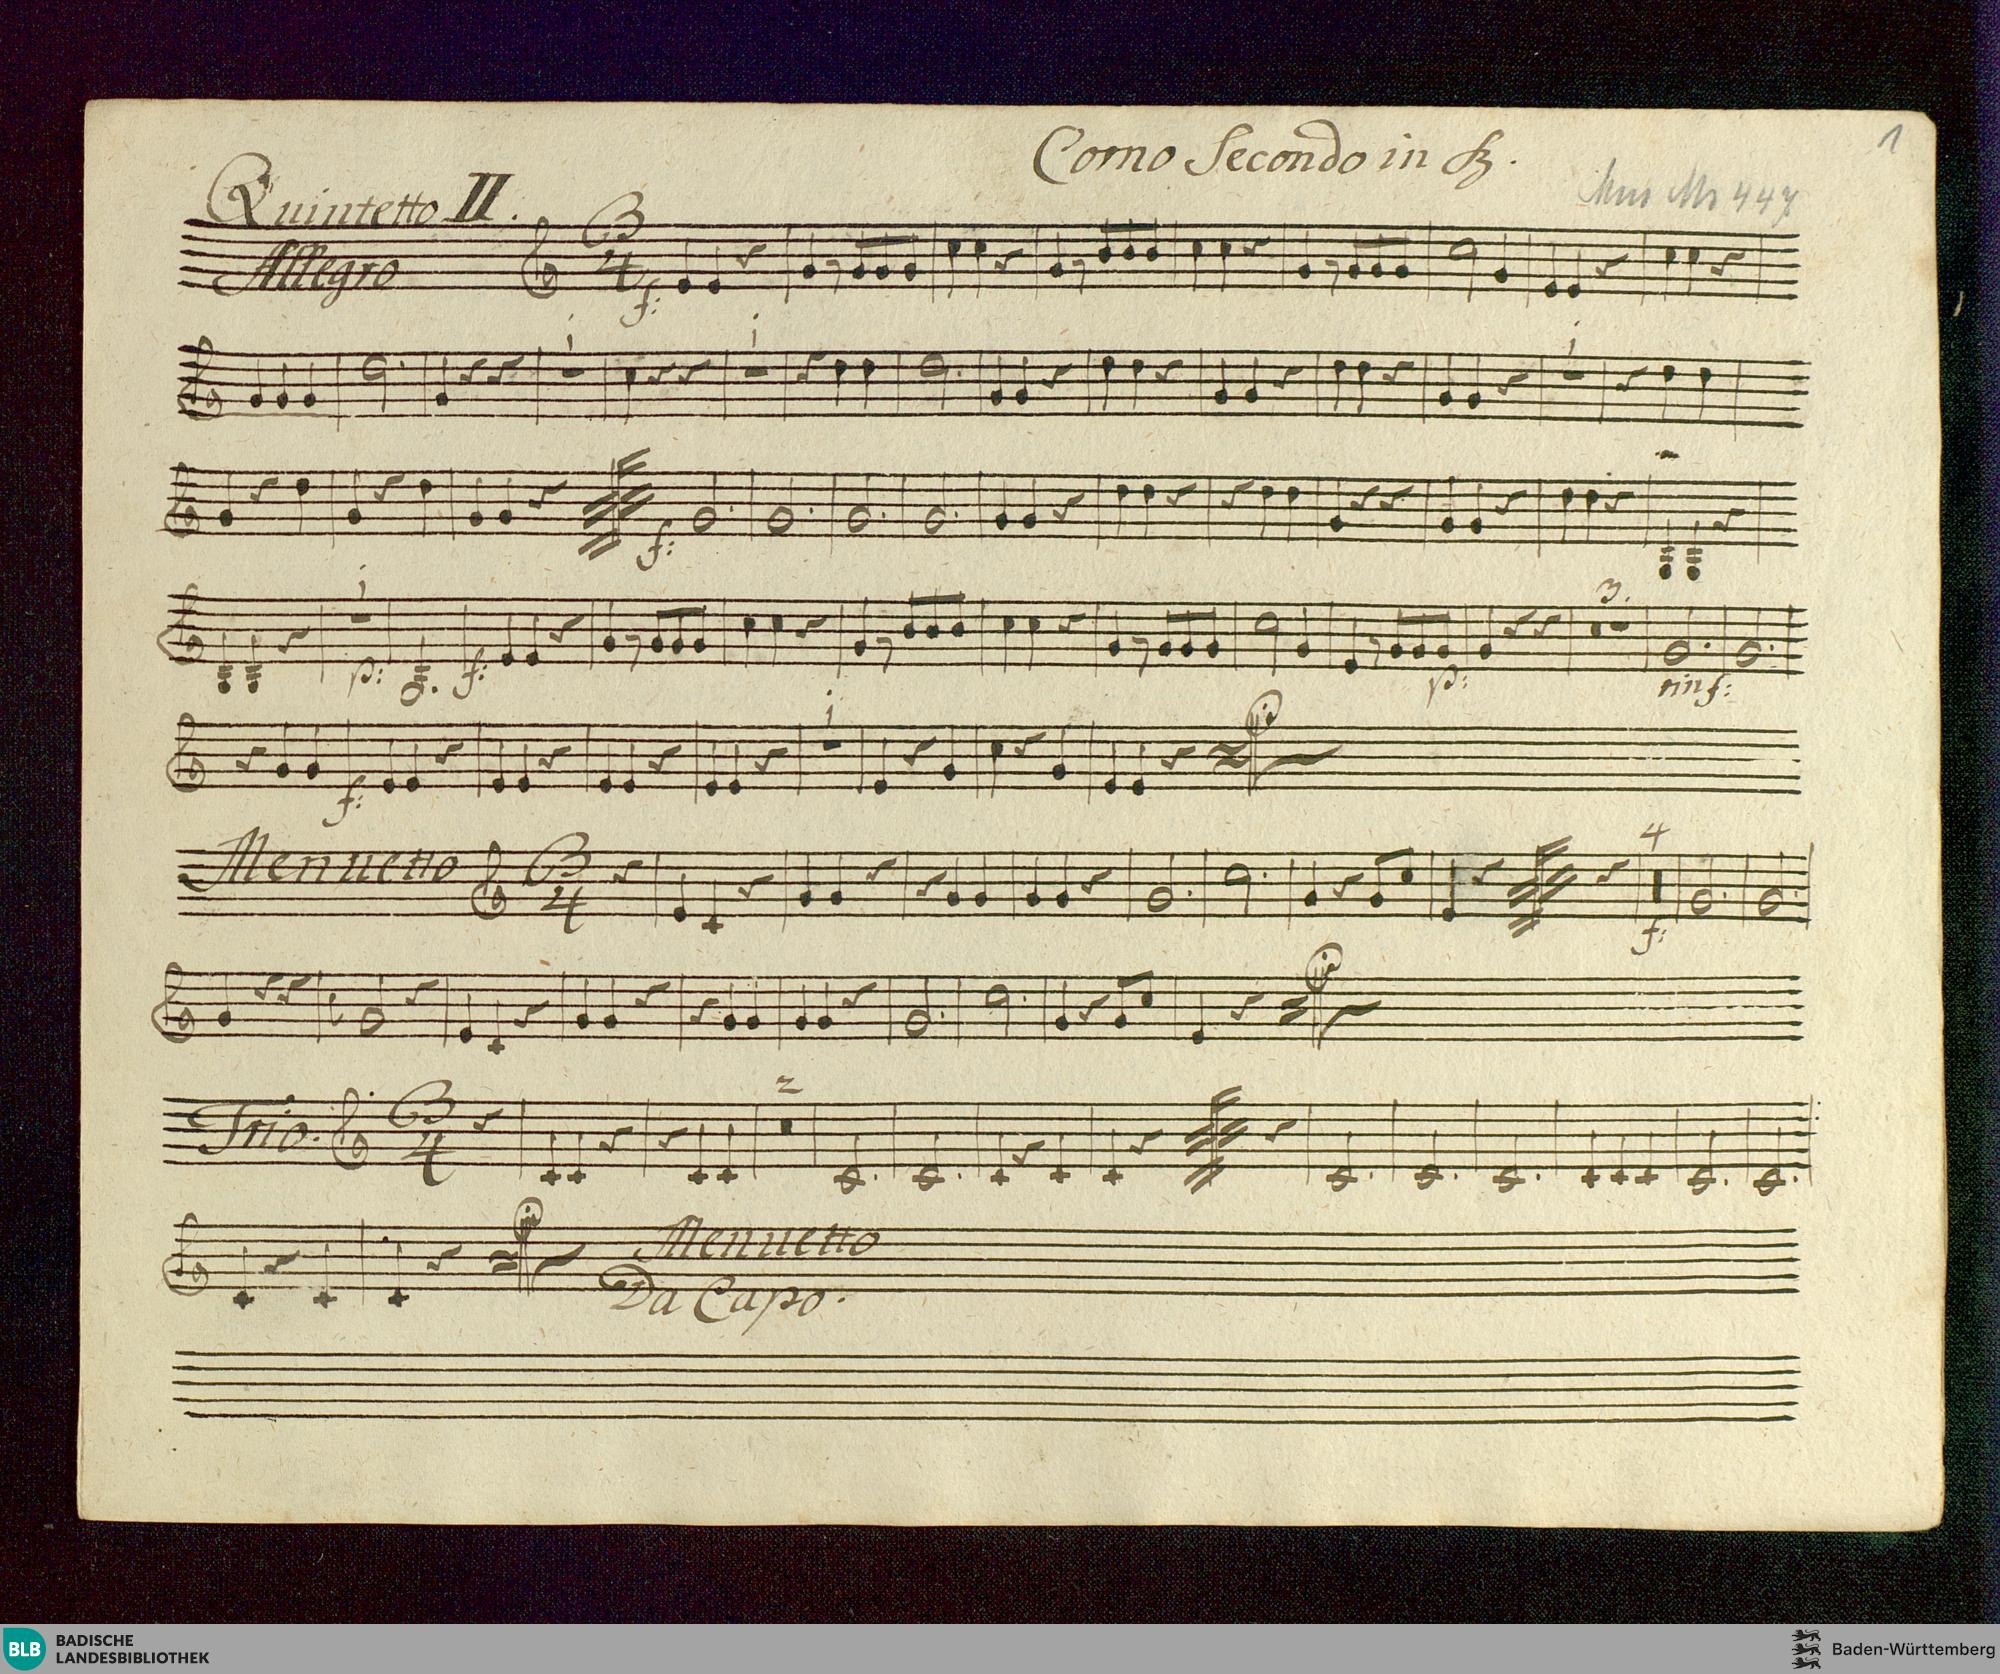 1
Corno Secondo in
Mus Ms 447
Quintetto II.
Allegro
3
4
f:
i
i
i
f:
i
p:
f:
p:
3.
rinf:
f:
i
Menuetto
3
4
4
f:
Trio.
3
4
2
Menuetto
Da Capo.
BLB BADISCHE
LANDESBIBLIOTHEK
Baden-Württemberg